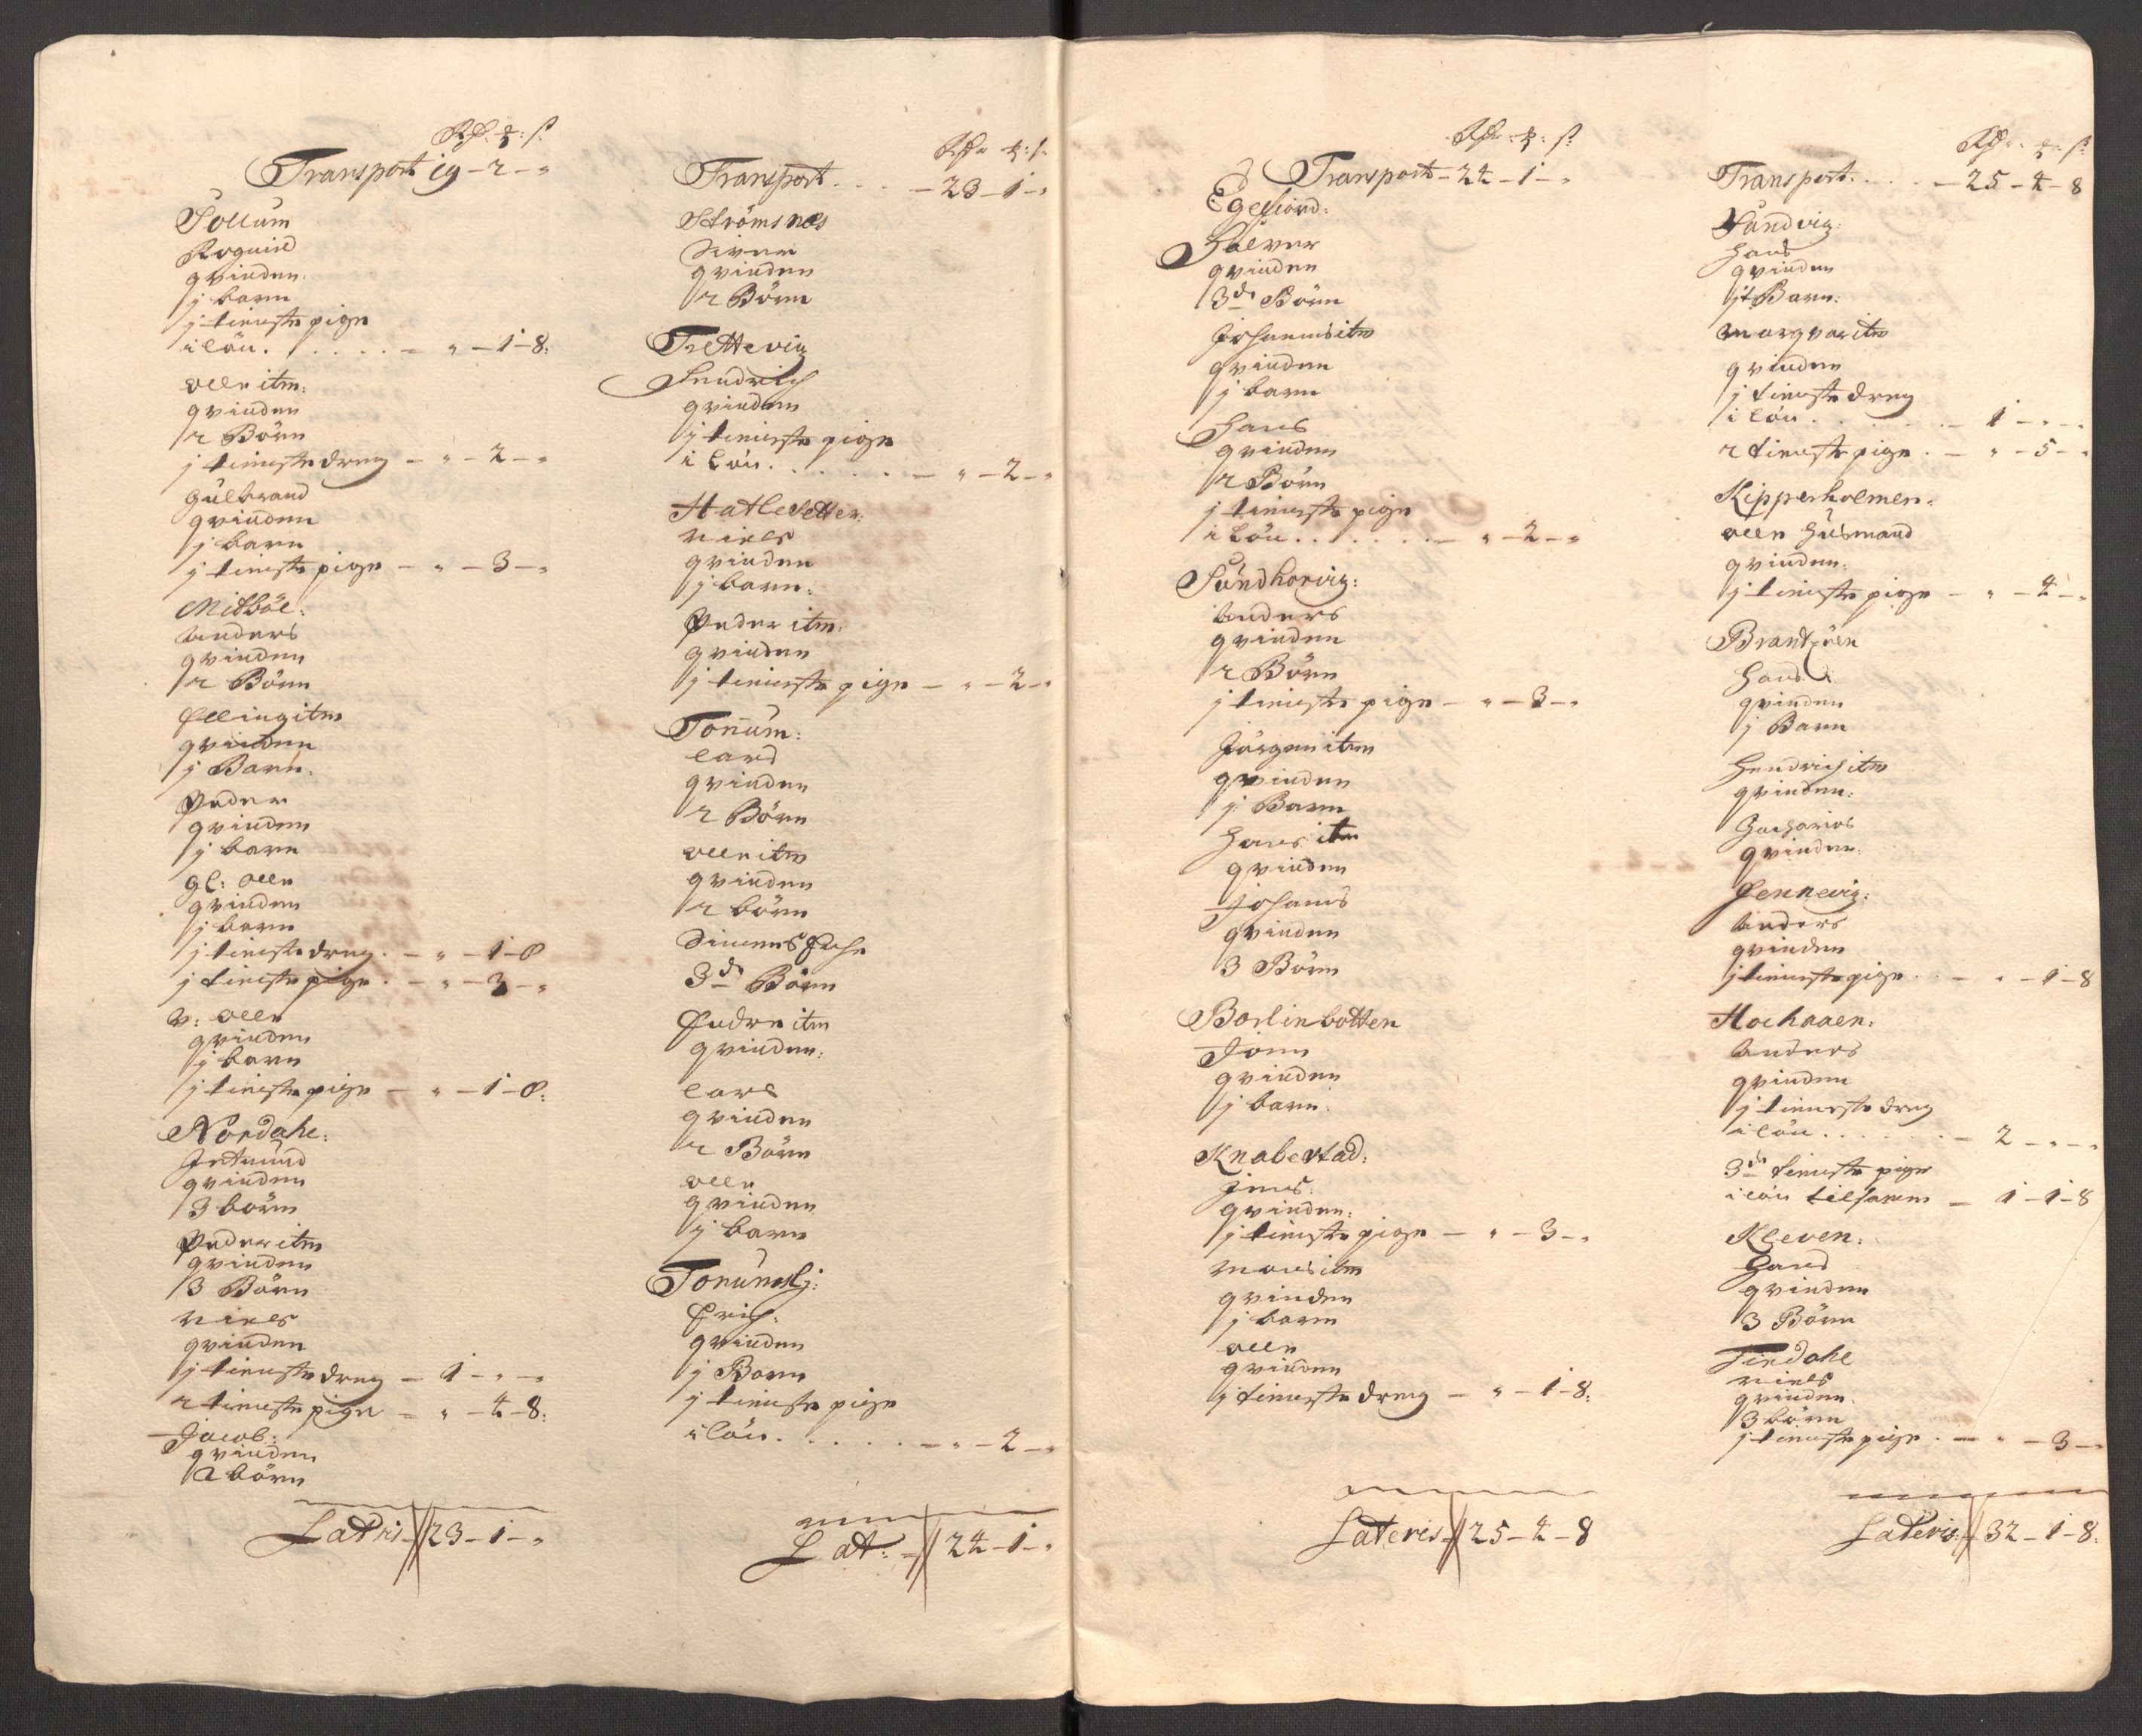 Rdr. ʒ: s:
Transport 19 – 2 – „
Sollum
Rognild
qvinden.
j barn
j tieniste pige
i lön. . . . . . – „ – 1 – 8:
olle itm:
qvinden
2 Börn
j tieniste dreng – „ – 2 – „
Gulbrand
qvinden
j barn
j tieniste pige – „ – 3 – „
Midböe:
Anders
qvinden
2 Börn
Elling itm
qvinden
j Barn.
Peder
qvinden
j barn
gl: olle
qvinden
j barn
j tieniste dreng. – „ – 1 – 8
j tieniste pige. – „ – 3 – „
v: olle
qvinden
j barn
j tieniste pige – „ – 1 – 8:
Nordahl:
qvinden
3 börn
Peder itm
qvinden
3 Börn
Niels
qvinden
j tieniste dreng – 1 – „ – „
2 tieniste piger – „ – 4 – 8:
Jacob:
qvinden
2 börn
Latris 23 – 1 – „
Rdr ʒ: s.
Transport. . . . – 23 – 1 – „
Strömsnes
Siver
qvinden
2 Börn
Trettevig
Hendrich
qvinden
j tieniste pige
i Lön. . . . . . . – „ – 2 – „
Hatlesetter:
Niels
qvinden
j barn:
Peder itm:
qvinden
j tieniste pige – „ – 2 – „
Tonnum:
Lars
qvinden
2 Börn
olle itm
qvinden
2 börn
Simens Enche
3de Börn
Endre itm
qvinden:
Lars
qvinden
2 Börn
olle
qvinden
j barn
Erich:
qvinden
j Barn
j tieniste pige
i lön. . . . . . . – „ – 2 – „
Lat: – 24 – 1 – „
Rdr. ʒ: s:
Transport – 24 – 1 – „
Egefiord:
Halver
qvinden
3de Börn
Johannes itm
qvinden
j barn
Hans
qvinden
2 Börn
j tieniste pige
i Lön. . . . . . . – „ – 2 – „
Sundhorvig:
Anders
qvinden
2 Börn
j tieniste pige – „ – 3 – „
Jörgen itm
qvinden
j Barn
Hans itm
qvinden
Johanes
qvinden
3 Börn
Borlinbotten
Jonn
qvinden
j barn:
Knabestad:
Jens:
qvinden:
j tieniste pige – „ – 3 – „
Mons itm
qvinden
j barn
olle
qvinden
j tieniste dreng – „ – 1 – 8:
Lateris 25 – 4 – 8
Rdr. ʒ: s:
Transport. . . . – 25 – 4 – 8
Sandvig:
Hans
qvinden
jt Barn:
Margvar itm
qvinden
j tieniste dreng
i lön. . . . . . . – 1 – „ – „
2 tieniste pige. – „ – 5 – „
Kipperholmen.
olle Husmand
qvinden:
j tieniste pige – „ – 4 – „
Hans
qvinden
j Barn
Hendrich itm
qvinden:
Zacharias
qvinden.
Fennevig:
Anders
qvinden
j tieniste pige. – „ – 1 – 8
Hochaaen:
Anders
qvinden
j tieniste dreng
i lön. . . . . . . – 2 – „ – „
3de tieniste pige
i lön tilsamen – 1 – 1 – 8
Kleven:
Hans
qvinden
3 Börn
Findahl
Niels
qvinden.
3 börn
j tieniste pige. – „ – 3 – „
Lateris: 32 – 1 – 8: